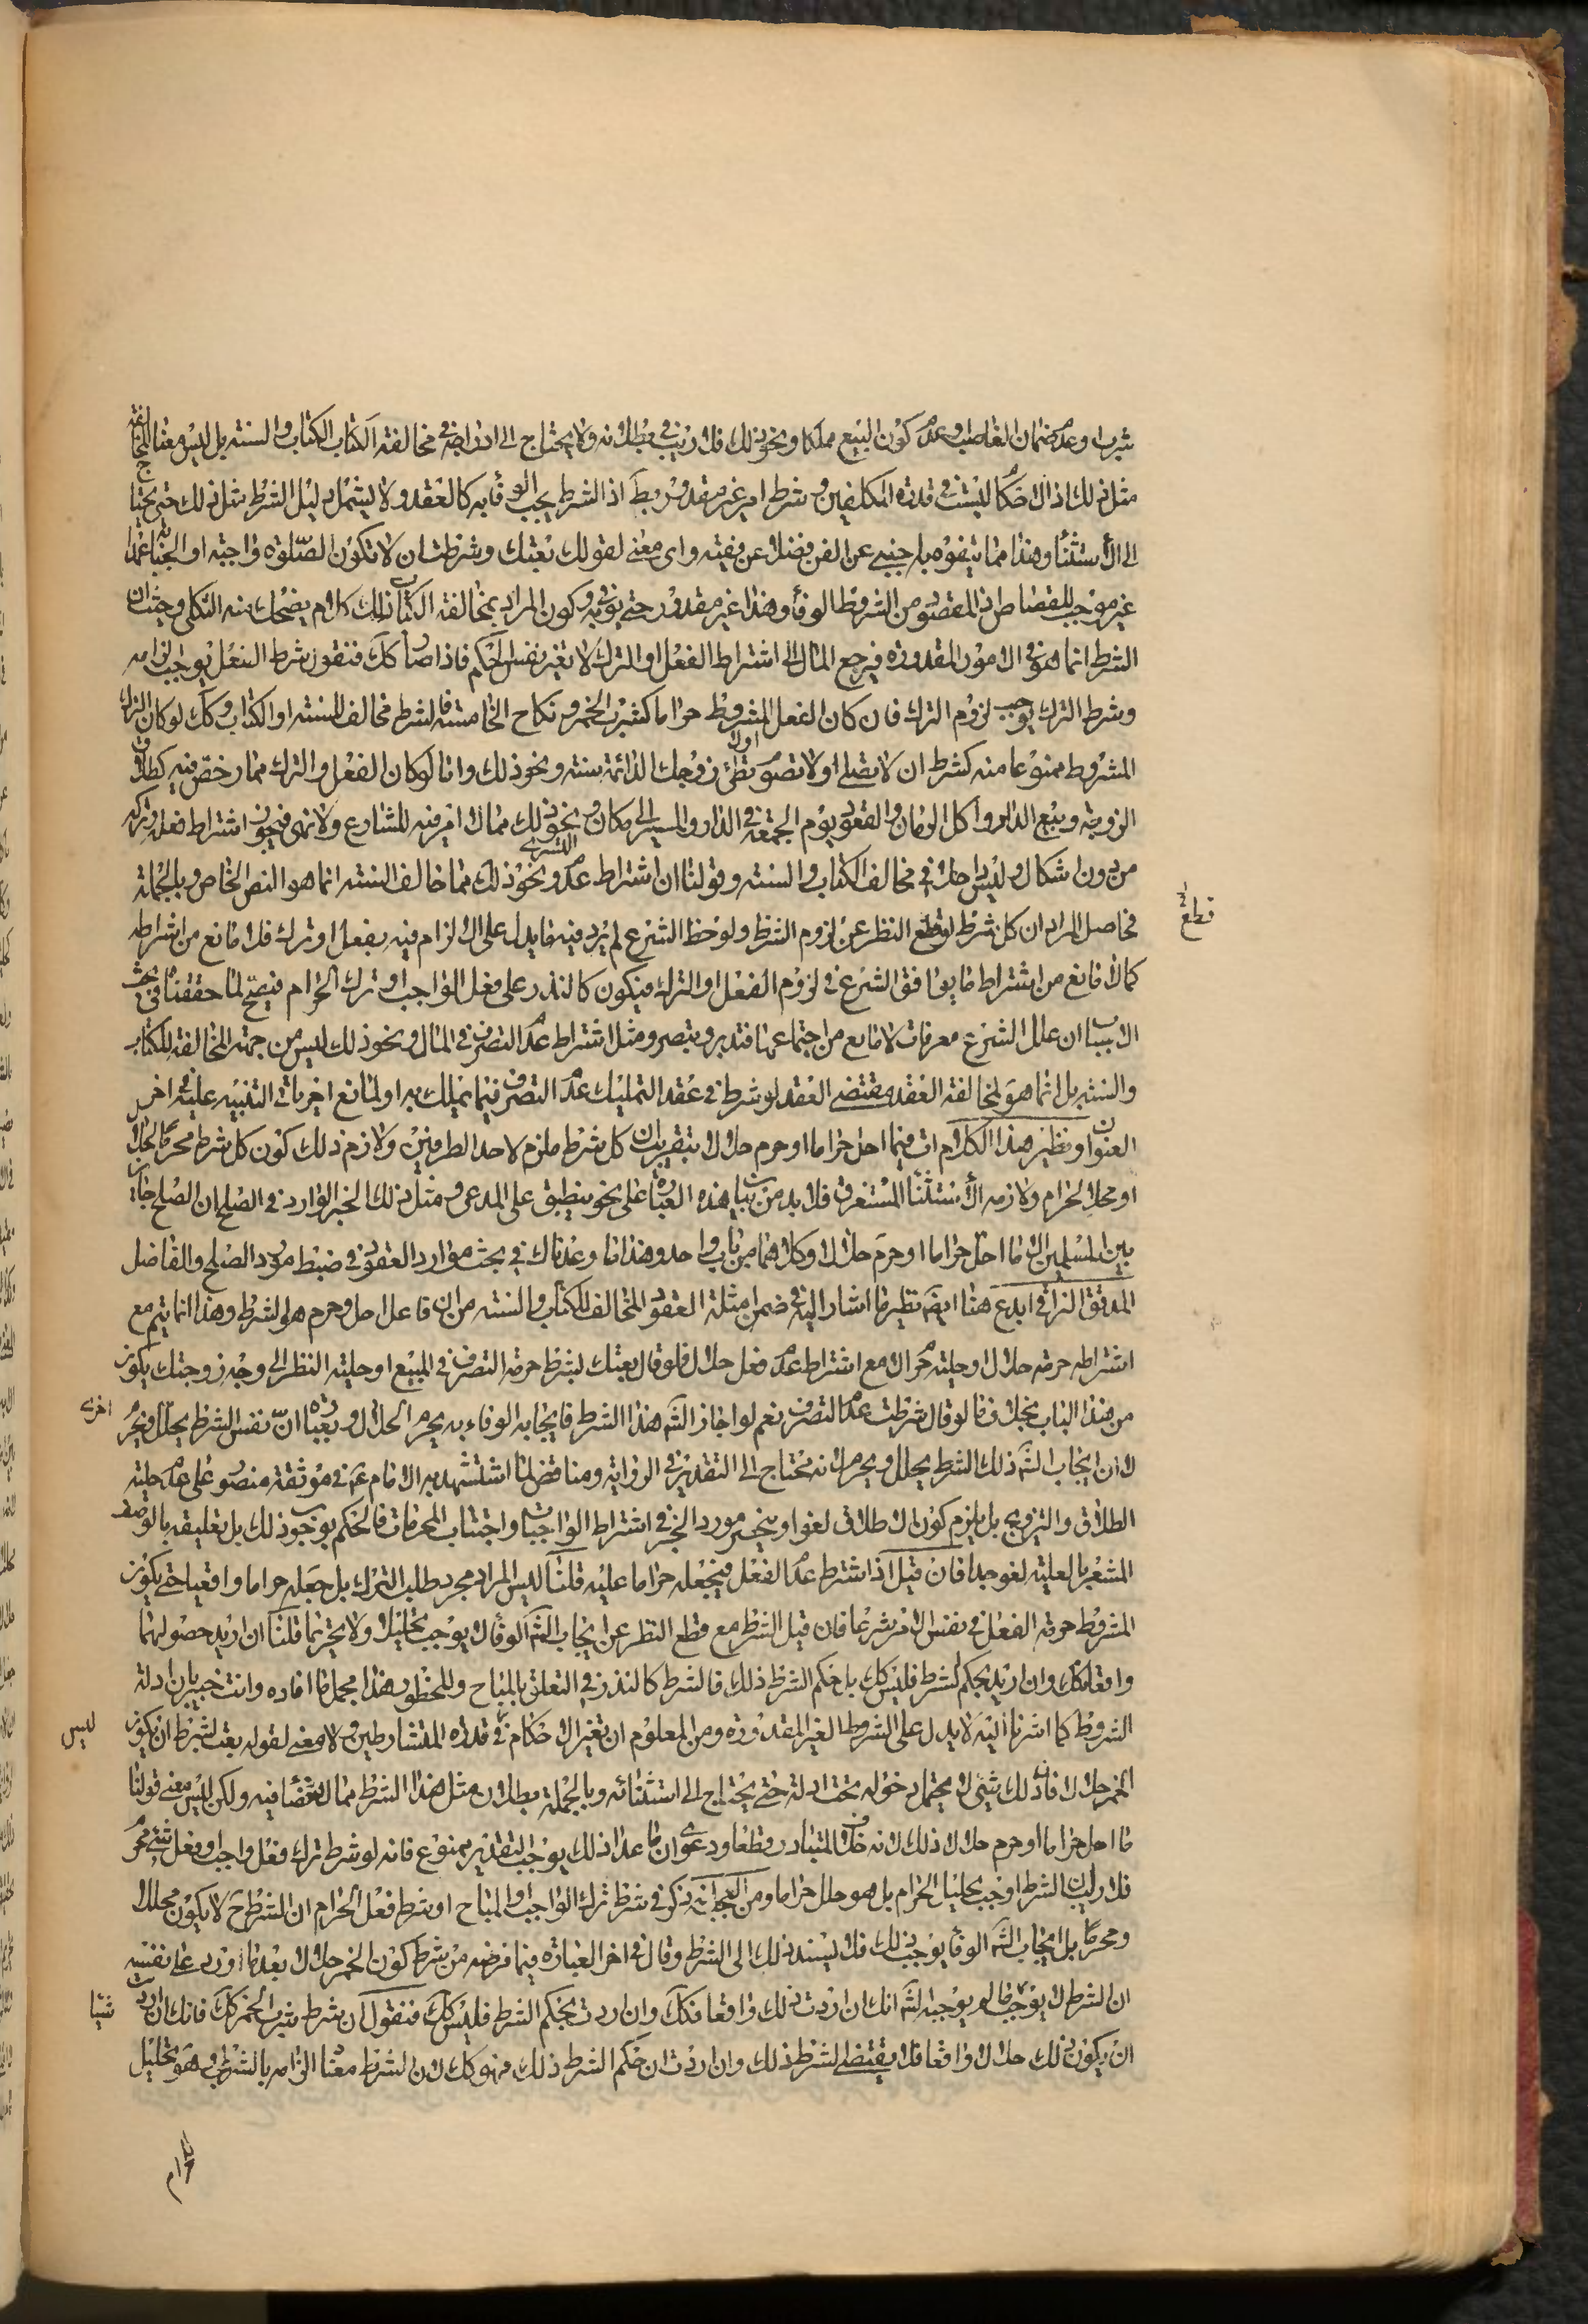 يثرب او عدم ضمان الغاصب او عدم كون المبيع مملكا ونحو ذلك فلا ريب في بطلانه ولا يحتاج الى ادراجه في مخالفة الكتاب الكتاب والسنة بل ليس معنا المخالفة
مثل ذلك اذ الاحكام ليست في قدرة المكلفين وشرط امر غير مقدور بط اذ الشرط يجب الوفاء به كالعقد ولا يشمل دليل الشرط مثل ذلك حتى يحتاج
الى الاستثناء وهذا مما يتفوه به اجنبي عن الفن فضلا عن فقيه واى معنى لقولك بعتك وشرطت ان لا تكون الصلوة واجبة او الجناية عمدا
غير موجب للقصاص اذ المقصود من الشروط الوفاء وهذا غير مقدور حتى يوفى به وكون المراد بمخالفة الكتاب ذلك كلام يضحك منه الثكلى وحيث ان
الشرط انما هو في الامور المقدورة فيرجع المال الى اشتراط الفعل او الترك لا تغير نفس الحكم فاذا صار كك فنقول شرط الفعل يوجب لزامه
وشرط الترك يوجب لزوم الترك فان كان الفعل المشروط حراما كشرب الخمر ونكاح الخامسة فالشرط مخالف للسنة او الكتاب وكك لو كان الترك
المشروط ممنوعا منه كشرط ان لا تصلى او لا تصوم او لا تطئ زوجك الدائمة سنة ونحو ذلك واما لو كان الفعل والترك مما رخص فيه كطلاق
الزوجة وبيع الدار واكل الرمان والقعود يوم الجمعة في الدار والمسير الى مكان ونحو ذلك مما لا امر فيه للشارع ولا نهى فيجوز اشتراط فعله وتركه
من دون اشكال وليس داخلا في مخالف الكتاب والسنة وقولنا ان اشتراط عدم التسرى ونحو ذلك مما خالف السنة انما هو النص الخاص وبالجملة
فحاصل المراد ان كل شرط لو قطع النظر عن لزوم الشرط ولوحظ الشرع لم يرد فيه ما يدل على الالزام فيه بفعل او ترك فلا مانع من اشتراطه
قطع
كما لا مانع من اشتراط ما يوافق الشرع في لزوم الفعل او الترك فيكون كالنذر على فعل الواجب او ترك الحرام فيصح لما حققناه في بحث
الاسباب ان علل الشرع معرفات لا مانع من اجتماعها فتدبر وتبصر ومثل اشتراط عدم التصرف في المال ونحو ذلك ليس من جهة المخالفة للكتاب
والسنة بل انما هو لمخالفة العقد مقتضى العقد لو شرط في عقد التمليك عدم التصرف فيما يملك به او لمانع اخر ياتى التنبيه عليه في اخر
العنوان ونظير هذا الكلام ات فيما احل حراما او حرم حلالا بتقريب ان كل شرط ملزم لاحد الطرفين ولازم ذلك كون كل شرط محرما لحلال
او محلا لحرام ولازمه الاستثناء المستغرق فلا بد من بيان هذه العبارة على نحو ينطبق على المدعى ومثل ذلك الخبر الوارد في الصلح ان الصلح جايز
بين المسلمين الا ما احل حراما او حرم حلالا وكلاهما من باب واحد وهذا ما وعدناك في بحث موارد العقود في ضبط مورد الصلح والفاضل
المدقق النراقى ابدع هنا ايضا نظير ما اشار اليه في ضمن امثلة العقود المخالف للكتاب والسنة من ان فاعل احل وحرم هو الشرط وهذا انما يتم مع
اشتراطه حرمة حلال او حلية حرام لا مع اشتراط عدم فعل حلال فلو قال بعتك بشرط حرمة التصرف في المبيع او حلية النظر الى وجه زوجتك يكون
من هذا الباب بخلاف ما لو قال شرطت عدم التصرف نعم لو اجاز الله هذا الشرط فايجابه الوفاء به يحرم الحلال وبعبارة اخرى ان نفس الشرط يحلل ويحرم
لا ان ايجاب الله ذلك الشرط يحلل ويحرم لانه محتاج الى التقدير في الرواية ومناقض لما استشهد به الامام ع في موثقة منصور على عدم حلية
الطلاق والتزويج بل يلزم كون الاطلاق لغوا وينحصر مورد الخبر في اشتراط الواجبات واجتناب المحرمات فالحكم بوجوب ذلك بل تعليقه بالوصف
المشعر بالعلية لغو جدا فان قيل اذا اشترط عدم الفعل فيجعله حراما عليه قلنا ليس المراد مجرد طلب الترك بل جعله حراما واقعيا حتى يكون
المشروط حرمة الفعل في نفس الامر شرعا فان قيل الشرط مع قطع النظر عن ايجاب الله الوفاء لا يوجب تحليلا ولا تحريما قلنا ان اريد حصولهما
واقعا فكك وان اريد بحكم الشرط فليس كك بل حكم الشرط ذلك فالشرط كالنذر في التعلق بالمباح والمحظور هذا مجمل ما افاده وانت خبير بان ادلة
الشروط كما اشرنا اليه لا يدل على الشروط الغير المقدورة ومن المعلوم ان تغير الاحكام ليس في قدرة المتشارطين ولا معنى لقوله بعت بشرط ان يكون
الخمر حلالا فان ذلك شئ لا يحتمل دخوله تحت ادلة حتى يحتاج الى استثنائه وبالجملة بطلان مثل هذا الشرط مما لا غضاضة فيه ولكن ليس معنى قولنا
ما احل حراما او حرم حلالا ذلك لانه خلاف المتبادر قطعا ودعوى ان ما عدا ذلك يوجب التقدير ممنوع فانه لو شرط ترك فعل واجب او فعل شئ محرم
فلا ريب ان الشرط اوجب تحليل الحرام بل هو حلل حراما ومن العجب انه ذكر في شرط ترك الواجب والمباح او شرط فعل الحرام ان الشرط ح لا يكون محللا
ومحرما بل ايجاب الله الوفاء يوجب ذلك فلا يسند ذلك الى الشرط وقال في اخر العبارة فيما فرضه من شرط كون الخمر حلالا بعد ما اورد على نفسه
ان الشرط لا يوجب ما لم يوجبه الله انك ان اردت ذلك واقعا فكك وان اردت بحكم الشرط فليس كك فنقول ان شرط شرب الخمر كك فانك ان اردت شيئا
ان يكون ذلك حلالا واقعا فلا يقتضى الشرط ذلك وان اردت ان حكم الشرط ذلك فهو كك لان الشرط معناه الزامه بالشرب وهو تحليل
لحرام